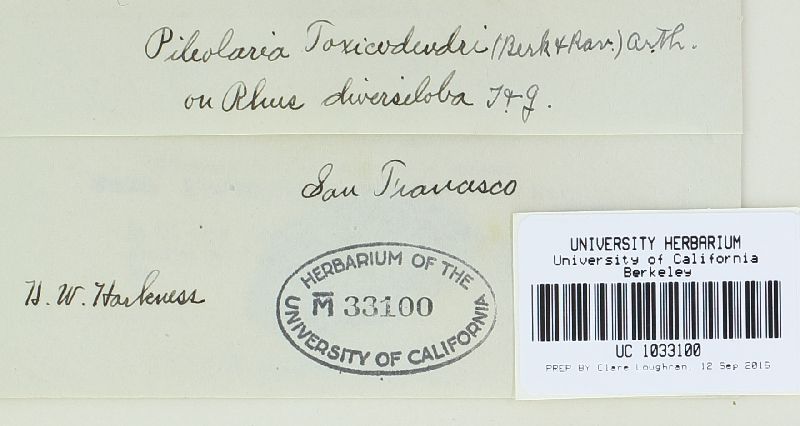 Pileolaria Toxicodendri (Berk & Rav.) Arth.
on Rhus diversiloba T & G.
San Francisco
H. W. Harkness
HERBARIUM OF THE
M 33100
UNIVERSITY OF CALIFORNIA
UNIVERSITY HERBARIUM
University of California
Berkeley
UC 1033100
PREP BY Clare Loughran 12 Sep 2015